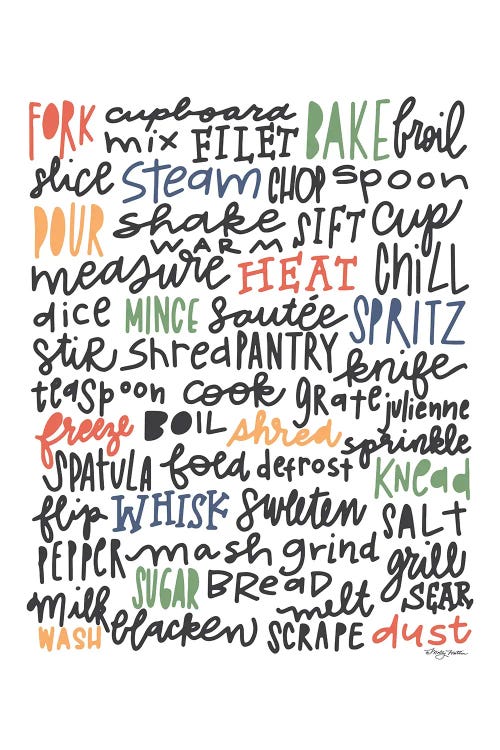 FORK cupboard BAKE broil
mix FILET
slice steam CHOP spoon
POUR shake SIFT cup
WARM
measure HEAT CHILL
dice MINCE sautée SPRITZ
stir shred PANTRY knife
teaspoon cook grate julienne
freeze BOIL shred sprinkle
SPATULA fold defrost knead
flip WHISK sweeten SALT
PEPPER mash grind grill
milk SUGAR BREAD melt SEAR
WASH blacken SCRAPE dust